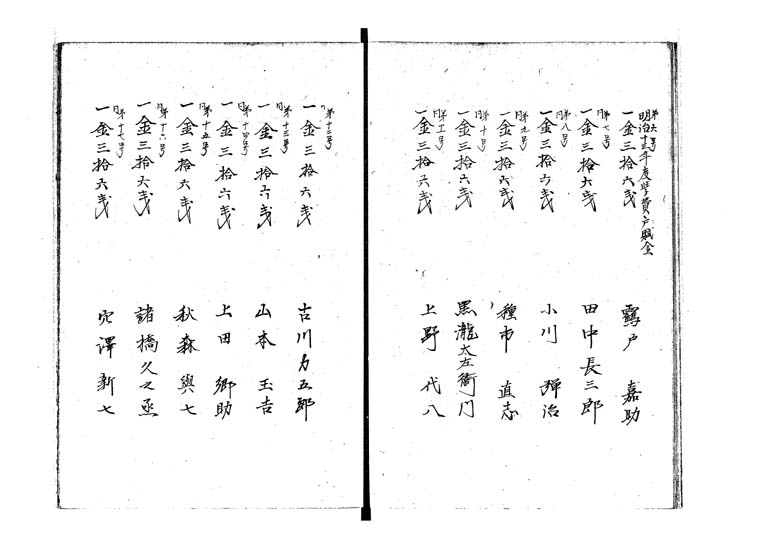 明治十三年度学費戸賦金
第六号
一金三拾六銭 鶴戸 嘉助
同第七号
一金三拾六銭 田中長三郎
同第八号
一金三拾六銭 小川 弾治
同第九号
一金三拾六銭 種市 直志
同第十号
一金三拾六銭 黒瀧太左衛門
同第十一号
一金三拾六銭 上野 代八
同第十二号
一金三拾六銭 古川力五郎
同第十三号
一金三拾六銭 山本 玉吉
同第十四号
一金三拾六銭 上田 郷助
同第十五号
一金三拾六銭 秋森 與七
同第十六号
一金三拾六銭 諸橋久之丞
同第十七号
一金三拾六銭 穴澤新七